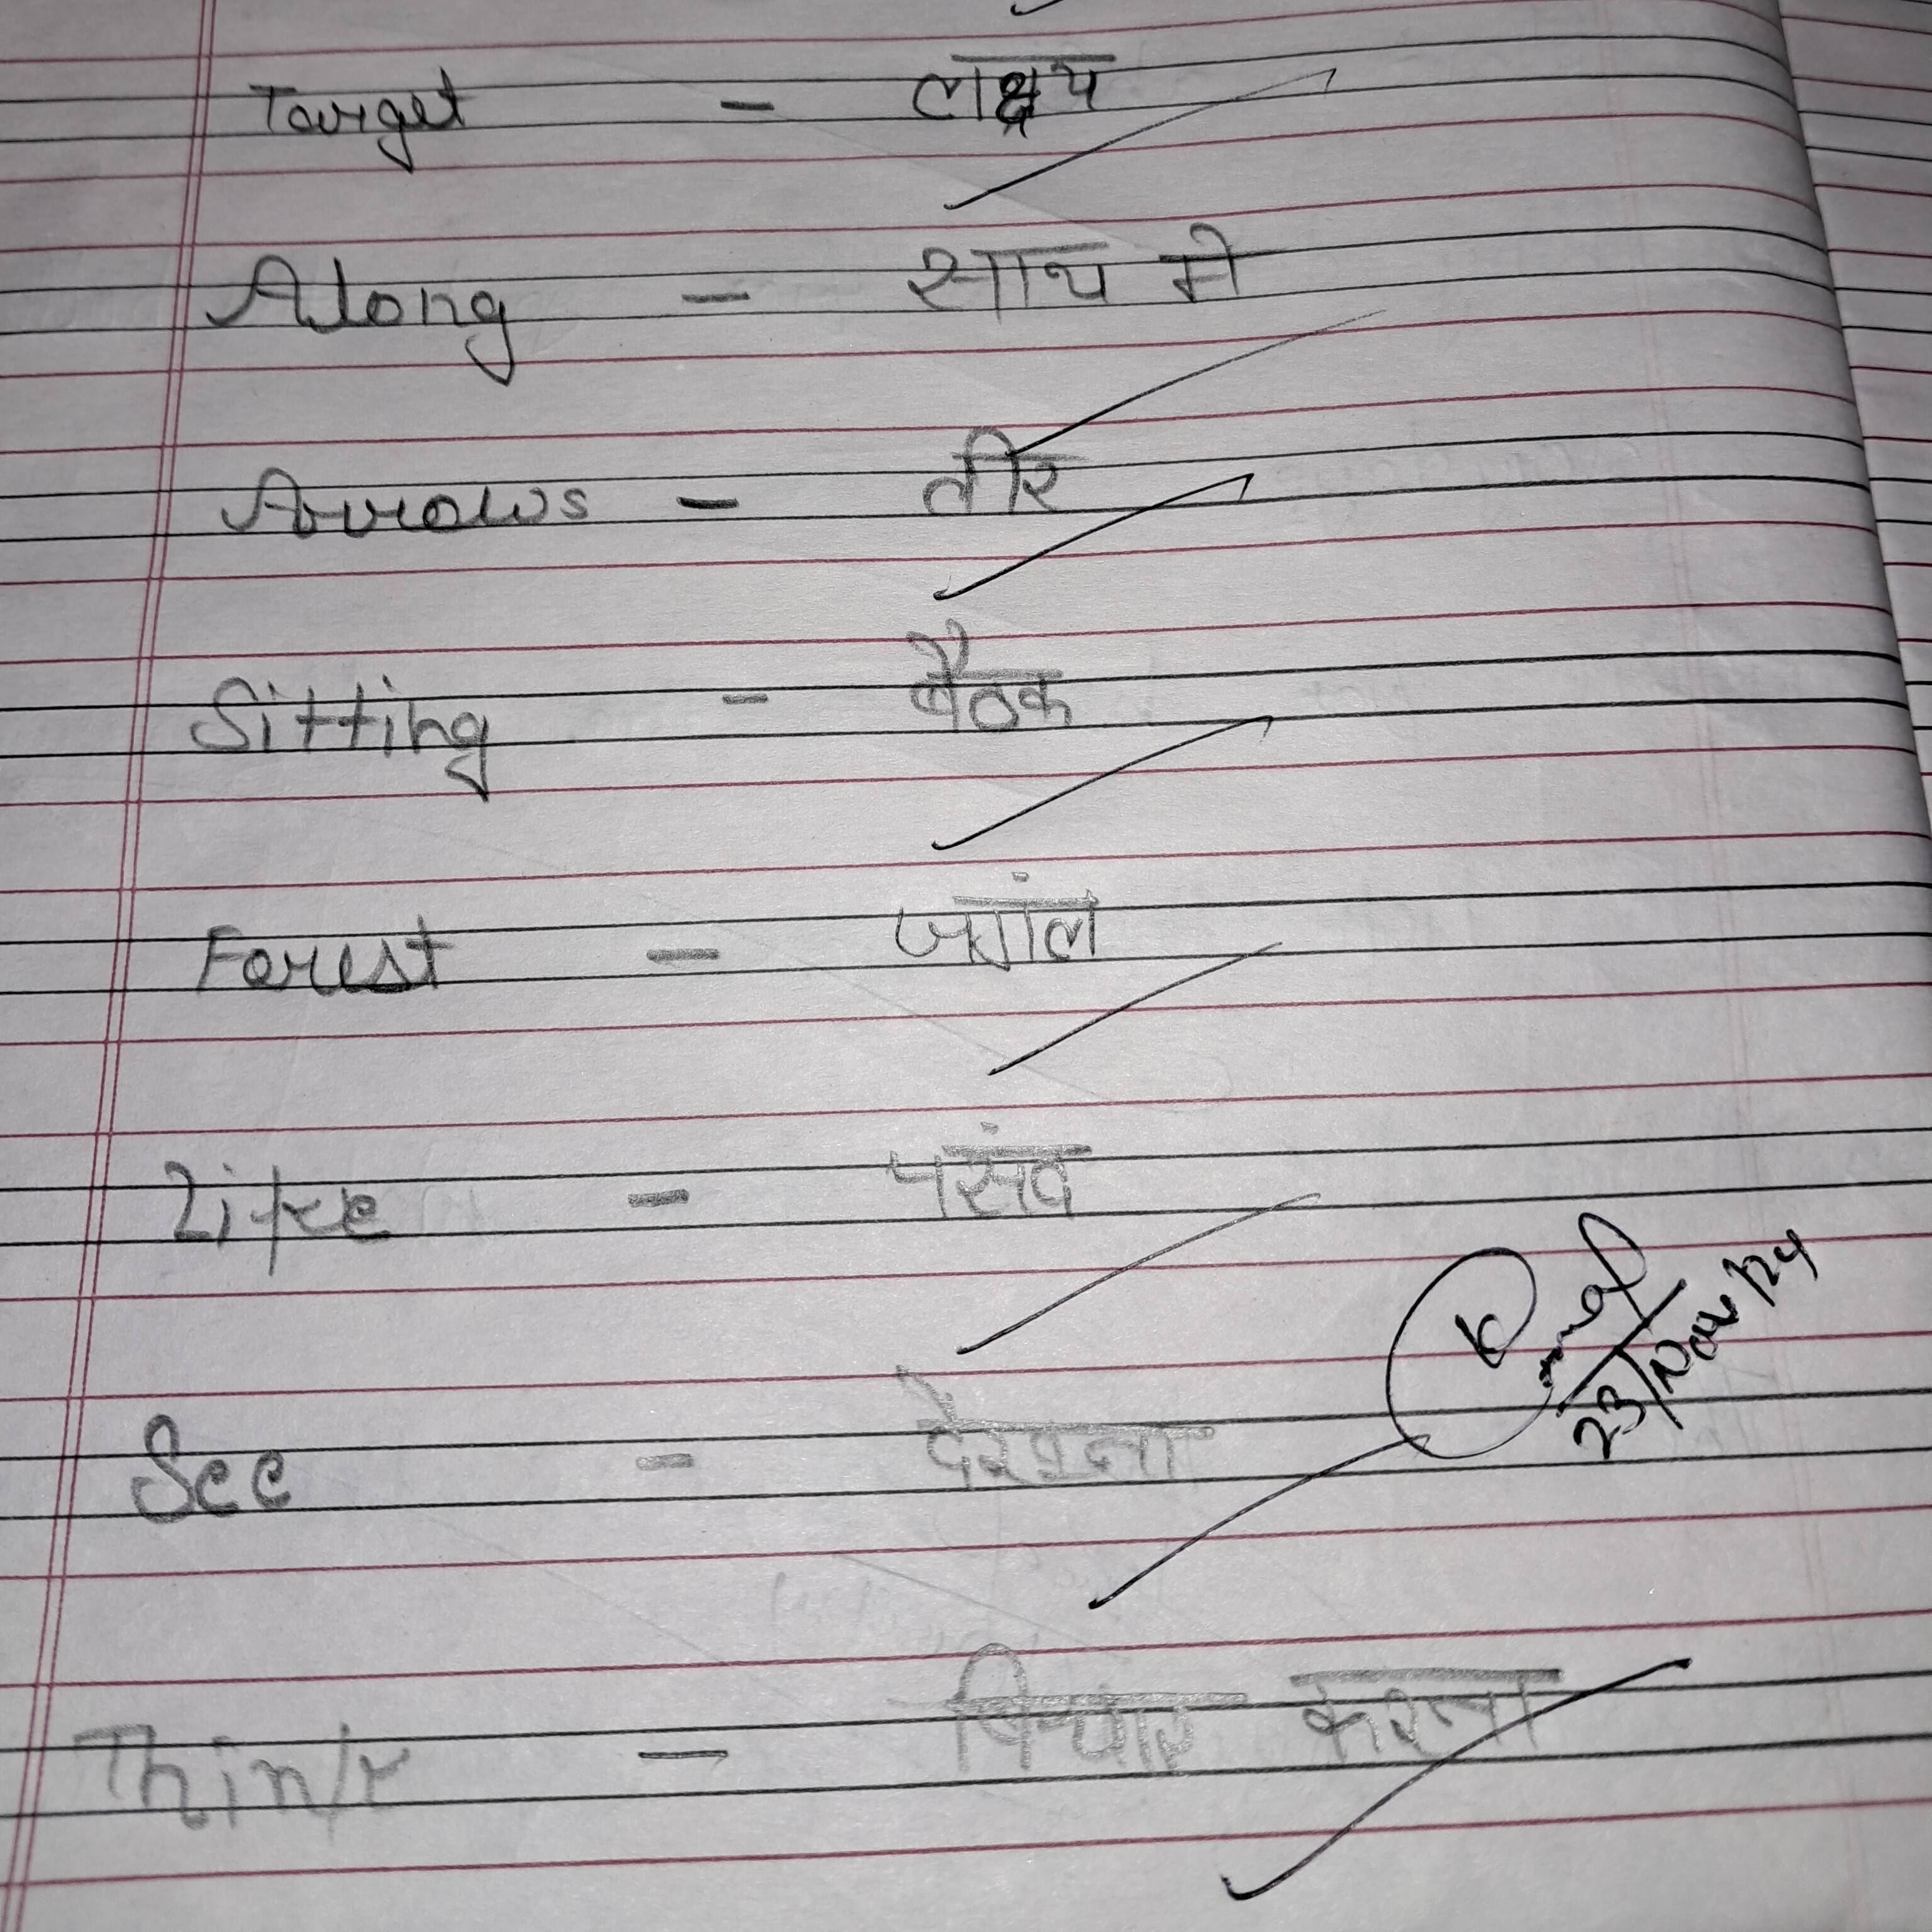 Target - लक्षय
Along - साथ मे
Arrows - तीर
Sitting - बैठक
Forest - जगंल
Like - पसंद
See - देखना
Think - विचार करना
23/Nov/24